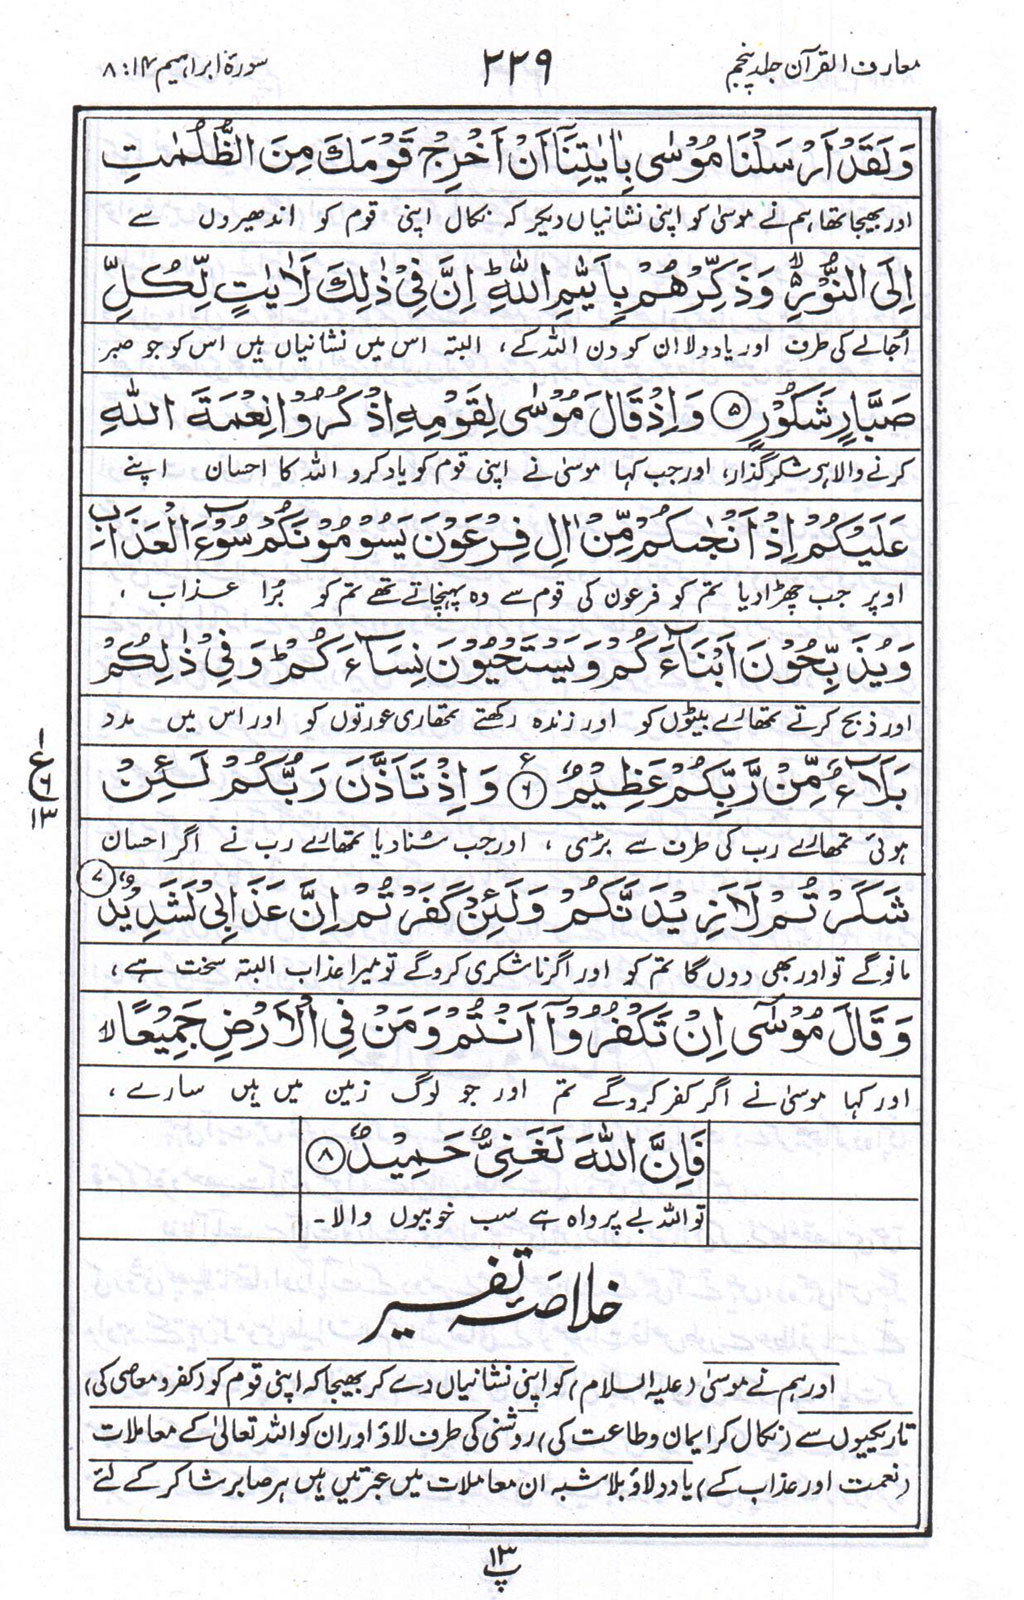 معارف القرآن جلد پنجم
۲۲۹
سورۂ ابراہیم ۱۴:۸
وَلَقَدْ اَرْسَلْنَا مُوْسٰى بِاٰيٰتِنَآ اَنْ اَخْرِجْ قَوْمَكَ مِنَ الظُّلُمٰتِ
اور بھیجا تھا ہم نے موسیٰ کو اپنی نشانیاں دیکر کہ نکال اپنی قوم کو اندھیروں سے
اِلَى النُّوْرِ ۙ۬ وَذَكِّرْهُمْ بِاَيّٰىمِ اللّٰهِ ؕ اِنَّ فِيْ ذٰلِكَ لَاٰيٰتٍ لِّكُلِّ
اُجالے کی طرف اور یاد دلا ان کو دن اللہ کے، البتہ اس میں نشانیاں ہیں اس کو جو صبر
صَبَّارٍ شَكُوْرٍ ۝۵ وَاِذْ قَالَ مُوْسٰى لِقَوْمِهِ اذْكُرُوْا نِعْمَةَ اللّٰهِ
کرنے والا ہے شکر گذار، اور جب کہا موسیٰ نے اپنی قوم کو یاد کرو اللہ کا احسان اپنے
عَلَيْكُمْ اِذْ اَنْجٰىكُمْ مِّنْ اٰلِ فِرْعَوْنَ يَسُوْمُوْنَكُمْ سُوْٓءَ الْعَذَابِ
اوپر جب چھڑا دیا تم کو فرعون کی قوم سے وہ پہنچاتے تھے تم کو بُرا عذاب ،
وَيُذَبِّحُوْنَ اَبْنَآءَكُمْ وَيَسْتَحْيُوْنَ نِسَآءَكُمْ ؕ وَفِيْ ذٰلِكُمْ
اور ذبح کرتے تمھارے بیٹوں کو اور زندہ رکھتے تمھاری عورتوں کو اور اس میں مدد
بَلَآءٌ مِّنْ رَّبِّكُمْ عَظِيْمٌ ۝۶ۧ وَاِذْ تَاَذَّنَ رَبُّكُمْ لَئِنْ
۱
ع
۶
۱۳
ہوئی تمھارے رب کی طرف سے بڑی ، اور جب سُنا دیا تمھارے رب نے اگر احسان
شَكَرْتُمْ لَاَزِيْدَنَّكُمْ وَلَئِنْ كَفَرْتُمْ اِنَّ عَذَابِيْ لَشَدِيْدٌ ۝۷
مانو گے تو اور بھی دوں گا تم کو اور اگر ناشکری کرو گے تو میرا عذاب البتہ سخت ہے ،
وَقَالَ مُوْسٰٓى اِنْ تَكْفُرُوْٓا اَنْتُمْ وَمَنْ فِي الْاَرْضِ جَمِيْعًا ۙ
اور کہا موسیٰ نے اگر کفر کرو گے تم اور جو لوگ زمین میں ہیں سارے ،
فَاِنَّ اللّٰهَ لَغَنِيٌّ حَمِيْدٌ ۝۸
تو اللہ بے پرواہ ہے سب خوبیوں والا۔
خلاصۂ تفسیر
اور ہم نے موسیٰ (علیہ السلام) کو اپنی نشانیاں دے کر بھیجا کہ اپنی قوم کو (کفر و معاصی کی)
تاریکیوں سے (نکال کر ایمان و طاعت کی) روشنی کی طرف لاؤ اور ان کو اللہ تعالیٰ کے معاملات
(نعمت اور عذاب کے) یاد دلاؤ بلا شبہ ان معاملات میں عبرتیں ہیں ہر صابر شاکر کے لئے
۱۳
پ